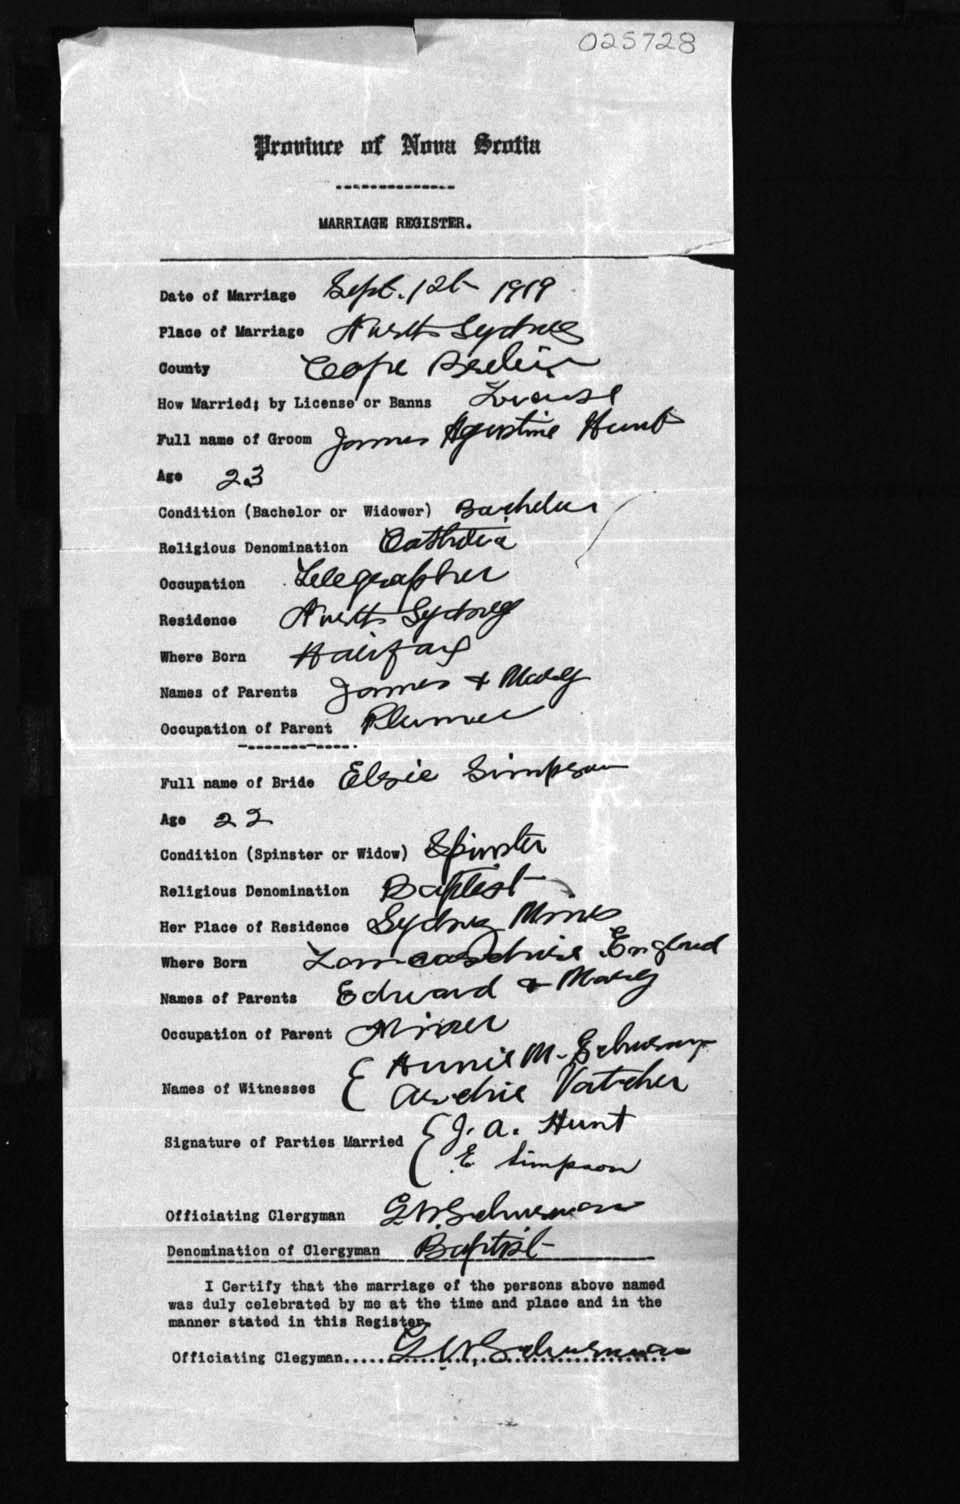 025728
Province of Nova Scotia
MARRIAGE REGISTER.
Date of Marriage Sept. 12th 1919
Place of Marriage North Sydney
County Cape Breton
How Married; by License or Banns License
Full name of Groom James Agustine Hunt
Age 23
Condition (Bachelor or Widower) Bachelor
Religious Denomination Catholic
Occupation Telegrapher
Residence North Sydney
Where Born Halifax
Names of Parents James & Mary
Occupation of Parent Plumer
Full name of Bride Elsie Simpson
Age 22
Condition (Spinster or Widow) Spinster
Religious Denomination Baptist
Her Place of Residence Sydney Mines
Where Born Lancashire England
Names of Parents Edward & Mary
Occupation of Parent Miner
Names of Witnesses Annie M. Schurman
Archie Vatcher
Signature of Parties Married J. A. Hunt
E Simpson
Officiating Clergyman G. W. Schurman
Denomination of Clergyman Baptist
I Certify that the marriage of the persons above named
was duly celebrated by me at the time and place and in the
manner stated in this Register.
Officiating Clegyman..... G. W. Schurman